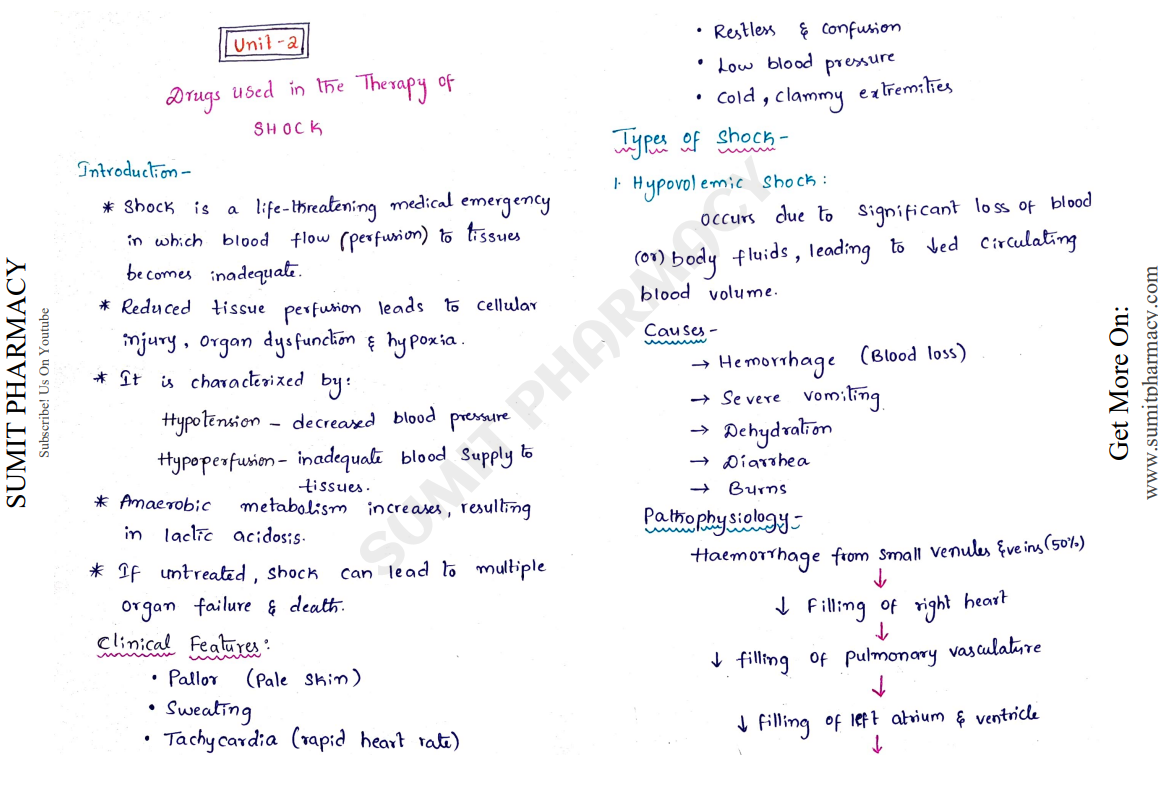 Unit-2
Drugs used in the Therapy of
SHOCK
Introduction-
* Shock is a life-threatening medical emergency
in which blood flow (perfusion) to tissues
becomes inadequate.
* Reduced tissue perfusion leads to cellular
injury, organ dysfunction & hypoxia.
* It is characterized by:
Hypotension - decreased blood pressure
Hypoperfusion - inadequate blood supply to
tissues.
* Anaerobic metabolism increases, resulting
in lactic acidosis.
* If untreated, shock can lead to multiple
organ failure & death.
Clinical Features:
• Pallor (Pale skin)
• Sweating
• Tachycardia (rapid heart rate)
• Restless & confusion
• Low blood pressure
• Cold, clammy extremities
Types of shock-
1. Hypovolemic shock:
occurs due to significant loss of blood
(or) body fluids, leading to ↓ed circulating
blood volume.
Causes-
→ Hemorrhage (Blood loss)
→ Severe vomiting
→ Dehydration
→ Diarrhea
→ Burns
Pathophysiology-
Haemorrhage from small venules & veins (50%)
↓
↓ Filling of right heart
↓
↓ filling of pulmonary vasculature
↓
↓ filling of left atrium & ventricle
↓
SUMIT PHARMACY
Subscribe! Us On Youtube
SUMIT PHARMACY
Get More On:
www.sumitpharmacy.com